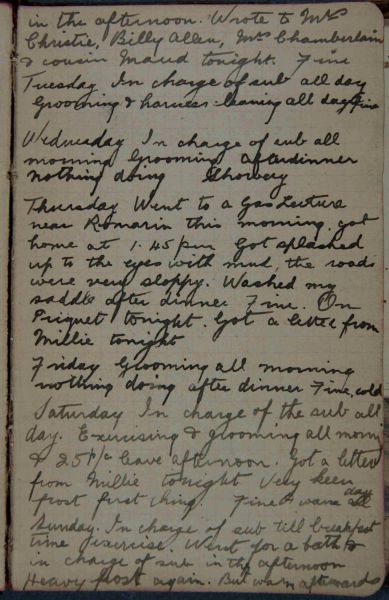 in the afternoon. Wrote to Mrs
Christie, Billy Allen, Mrs Chamberlain
& cousin Maud tonight. Fine
Tuesday In charge of sub all day
Grooming & harness cleaning all day Fine
Wednesday In charge of sub all
morning Grooming After dinner
nothing doing Showery
Thursday Went to a Gas Lecture
near Romarin this morning, got
home at 1.45 pm Got splashed
up to the eyes with mud, the roads
were very sloppy. Washed my
saddle after dinner Fine. On
Picquet tonight. Got a letter from
Millie tonight
Friday Grooming all morning
nothing doing after dinner Fine, cold
Saturday In charge of the sub all
day. Exercising & grooming all morn
& 25 p/c leave afternoon. Got a letter
from Millie tonight Very keen
frost first thing. Fine & warm all day
Sunday. In charge of sub till breakfast
time exercise. Went for a bath &
in charge of sub in the afternoon
Heavy frost again. But warm afterwards